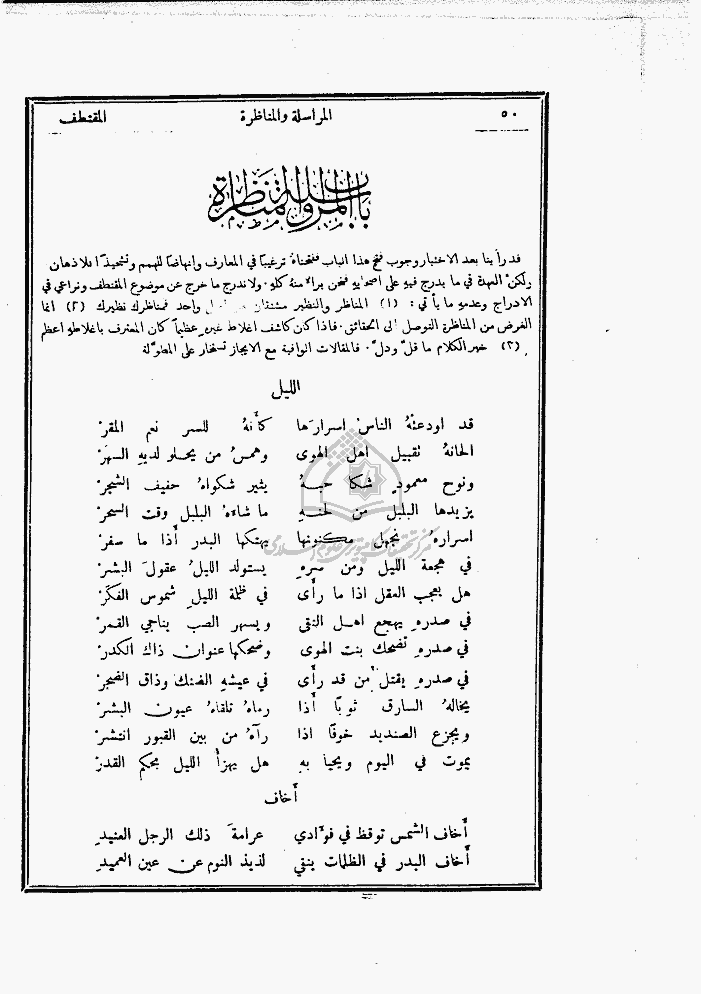 ٥٠ المراسلة والمناظرة المقتطف
باب المراسلة والمناظرة
قد رأينا بعد الاختبار وجوب فتح هذا الباب ففتحناهُ ترغيبًا في المعارف وإنهاضًا للهمم وتشحيذًا للاذهان
ولكنَّ العهدة في ما يدرج فيهِ على اصحابهِ فنحن براءٌ منهُ كلهِ. ولا ندرج ما خرج عن موضوع المقتطف ونراعي في
الادراج وعدمهِ ما يأتي: (١) المناظر والنظير مشتقان من اصل واحد فمناظرك نظيرك (٢) انما
الغرض من المناظرة التوصل الى الحقائق. فاذا كان كاشف اغلاط غيرهِ عظيمًا كان المعترف باغلاطهِ اعظم
(٣) خير الكلام ما قلَّ ودلَّ. فالمقالات الوافية مع الايجاز تستخار على المطوَّلة
الليل
قد اودعتْهُ الناسُ اسرارَها كأنهُ للسر نعم المقرْ
الحانهُ تقبيل اهل الهوى وهمسُ من يحلو لديهِ السهرْ
ونوح معمودٍ شكا حبهُ يثير شكواهُ حفيف الشجرْ
يزيدها البلبل من لحنهِ ما شاءهُ البلبل وقت السحرْ
اسرارهُ تجهل مكنونها يهتكها البدر أذا ما سفرْ
في هجعة الليل ومن سرهِ يستولد الليلُ عقولَ البشرْ
هل يعجب العقل اذا ما رأى في ظلمة الليلِ شموس الفكَرْ
في صدرهِ يهجع اهل التقى ويسهر الصب يناجي القمرْ
في صدرهِ تضحك بنت الهوى وضحكها عنوان ذاك الكدرْ
في صدرهِ يقتل من قد رأى في عيشهِ الضنك وذاق الضجرْ
يخالهُ السارق ثوبًا أذا رماهُ تلقاهُ عيون البشرْ
ويجزع الصنديد خوفًا اذا رآهُ من بين القبور انتشرْ
يموت في اليوم ويحيا بهِ هل يهزأ الليل بحكم القدرْ
أخاف
أخاف الشمس توقظ في فؤادي عرامةَ ذلك الرجل العنيدِ
أخاف البدر في الظلمات ينفي لذيذ النوم عن عين العميدِ
مركز تحقيقات كامپيوتري علوم اسلامي